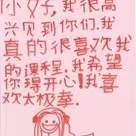 小子，我很高
兴见到你们.我
真的很喜欢我
的课程.我希望
你开心!我喜
欢太极拳.